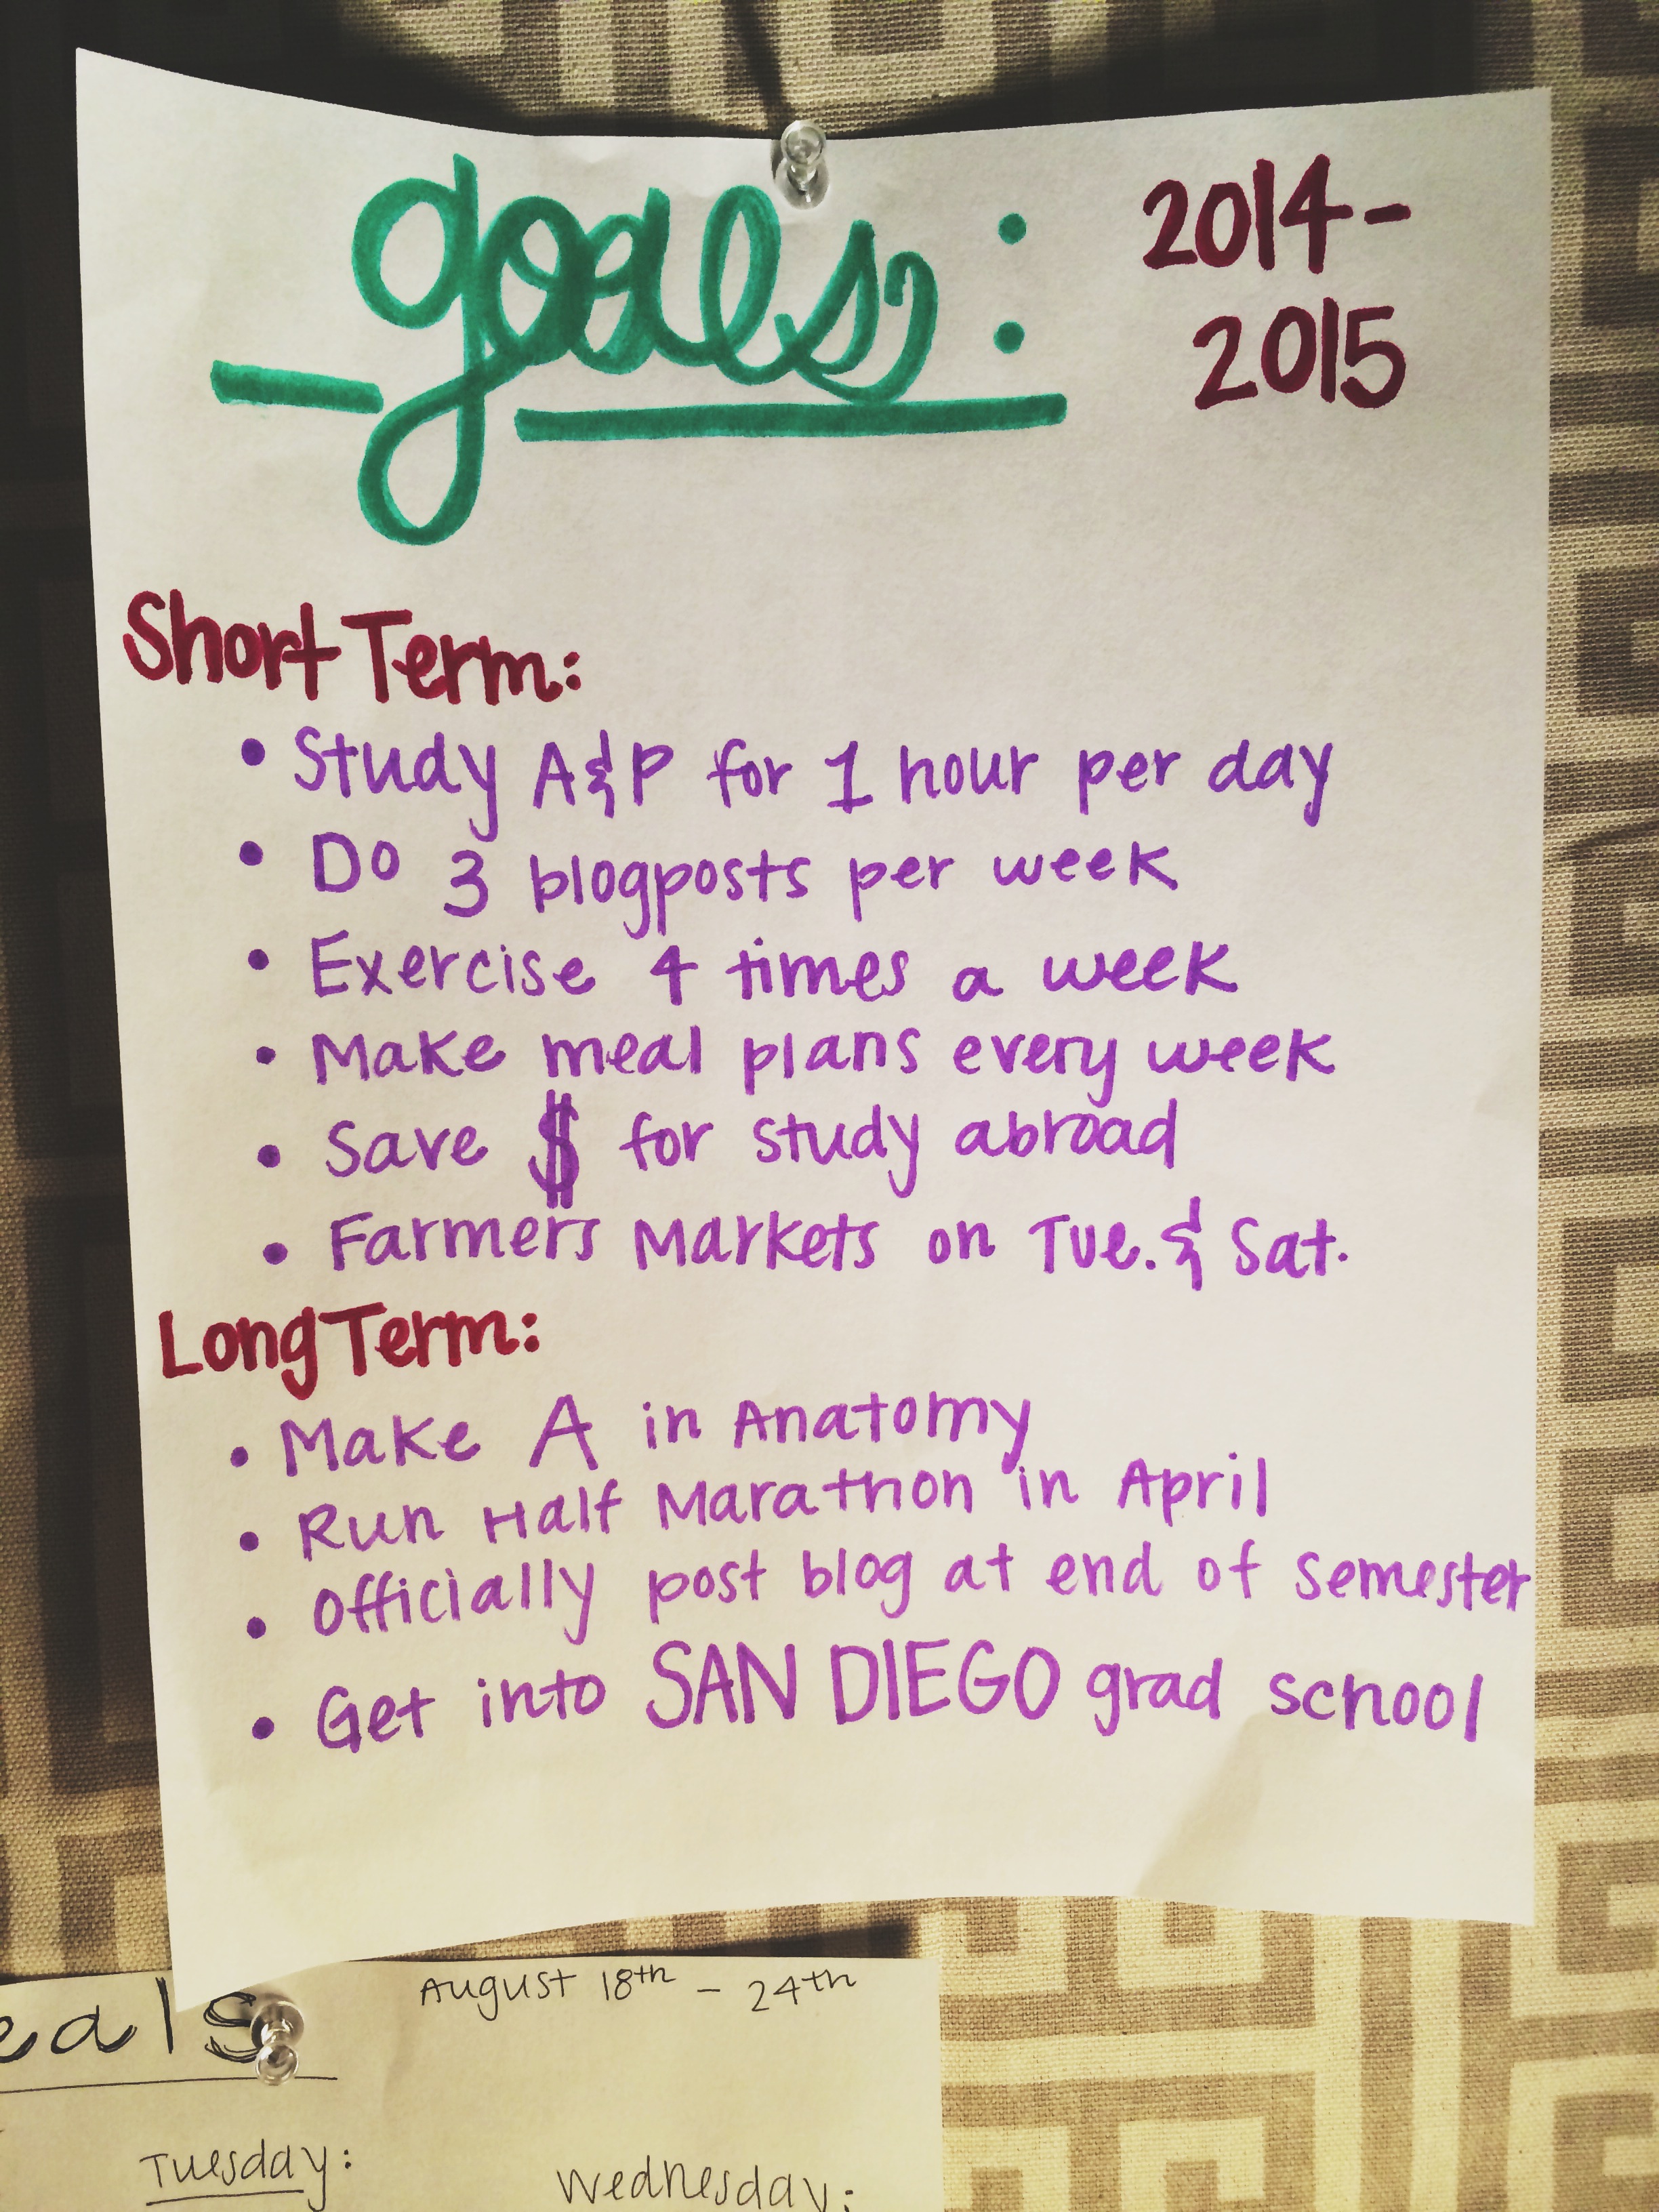 goals: 2014-
2015
Short Term:
• Study A&P for 1 hour per day
• Do 3 blogposts per week
• Exercise 4 times a week
• Make meal plans every week
• Save $ for study abroad
• Farmers Markets on Tue. & Sat.
Long Term:
• Make A in Anatomy
• Run Half Marathon in April
• Officially post blog at end of semester
• Get into SAN DIEGO grad school
eals August 18th - 24th
Tuesday: Wednesday: